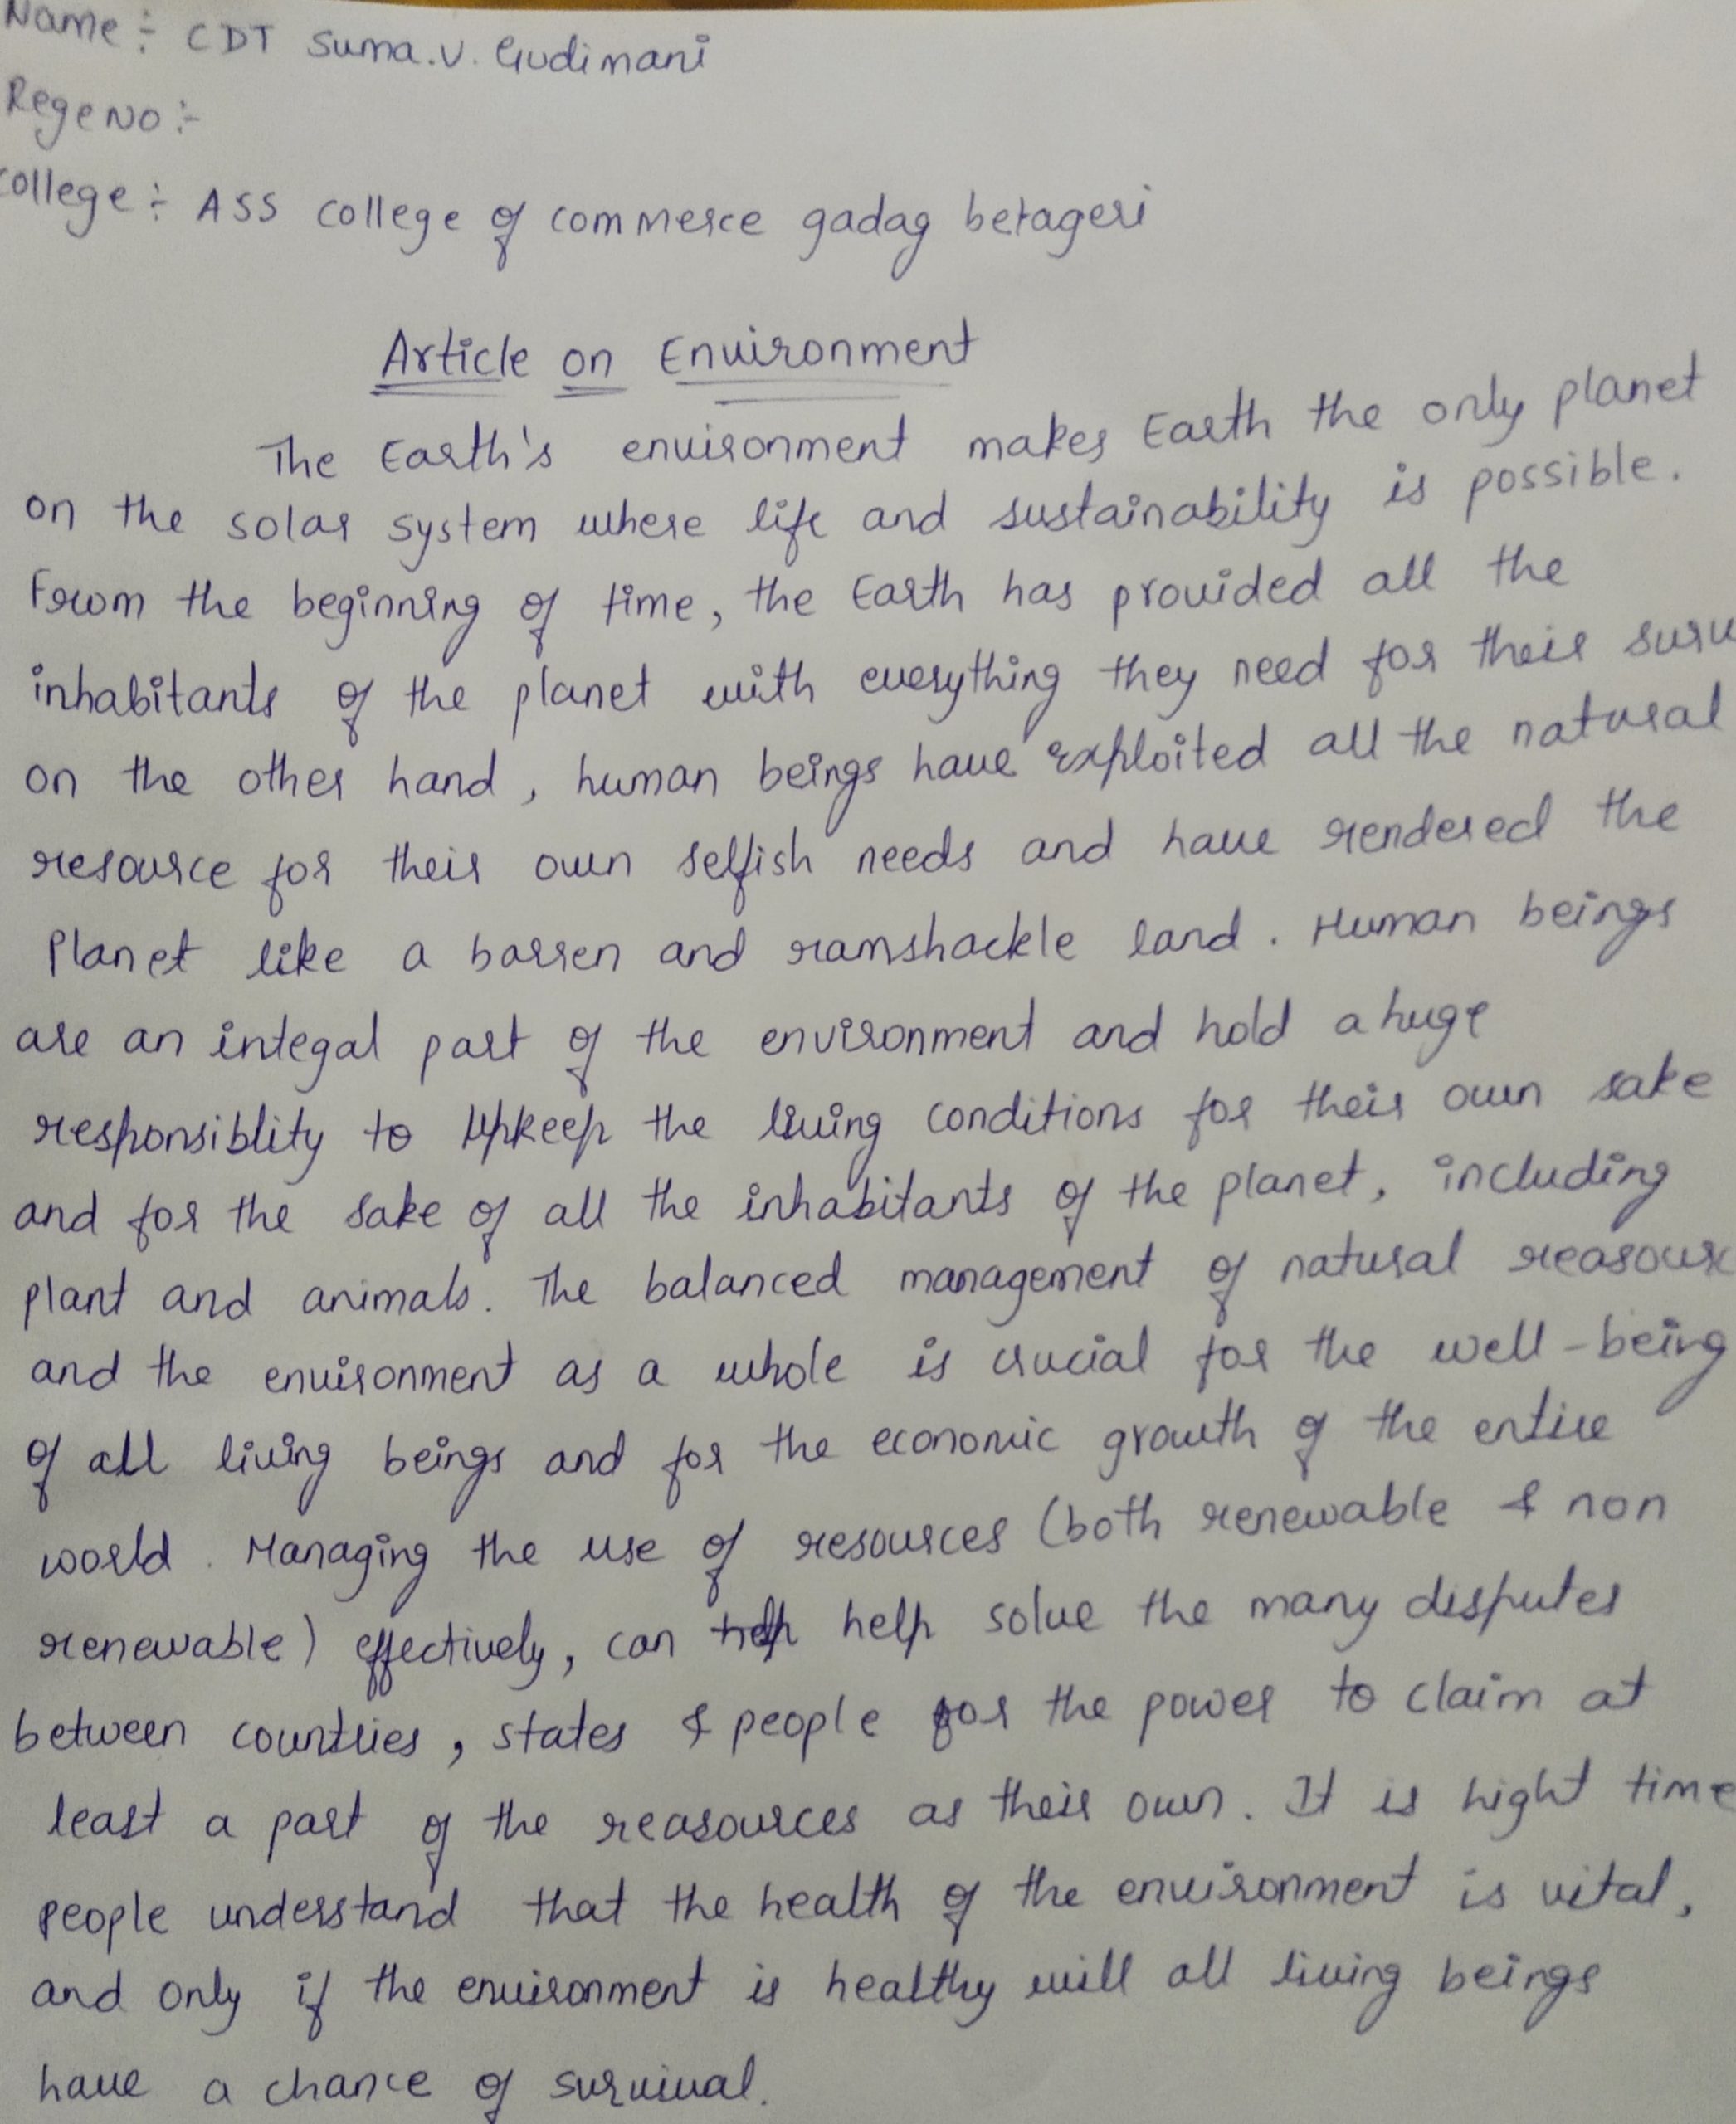 Name :- CDT Suma.V. Gudimani
Rege NO :-
College :- ASS college of commerce gadag betageri
Article on Environment
The Earth's environment makes Earth the only planet
on the solar system where life and sustainability is possible.
From the beginning of time, the Earth has provided all the
inhabitants of the planet with everything they need for their surv
on the other hand, human beings have exploited all the natural
resource for their own selfish needs and have rendered the
Planet like a barren and ramshackle land. Human beings
are an integal part of the environment and hold a huge
responsiblity to upkeep the living conditions for their own sake
and for the sake of all the inhabitants of the planet, including
plant and animals. The balanced management of natural reasourc
and the environment as a whole is crucial for the well-being
of all living beings and for the economic growth of the entire
world. Managing the use of resources (both renewable & non
renewable) effectively, can help solve the many disputes
between countries, states & people for the power to claim at
least a part of the reasources as their own. It is hight time
people understand that the health of the environment is vital,
and only if the environment is healthy will all living beings
have a chance of survival.